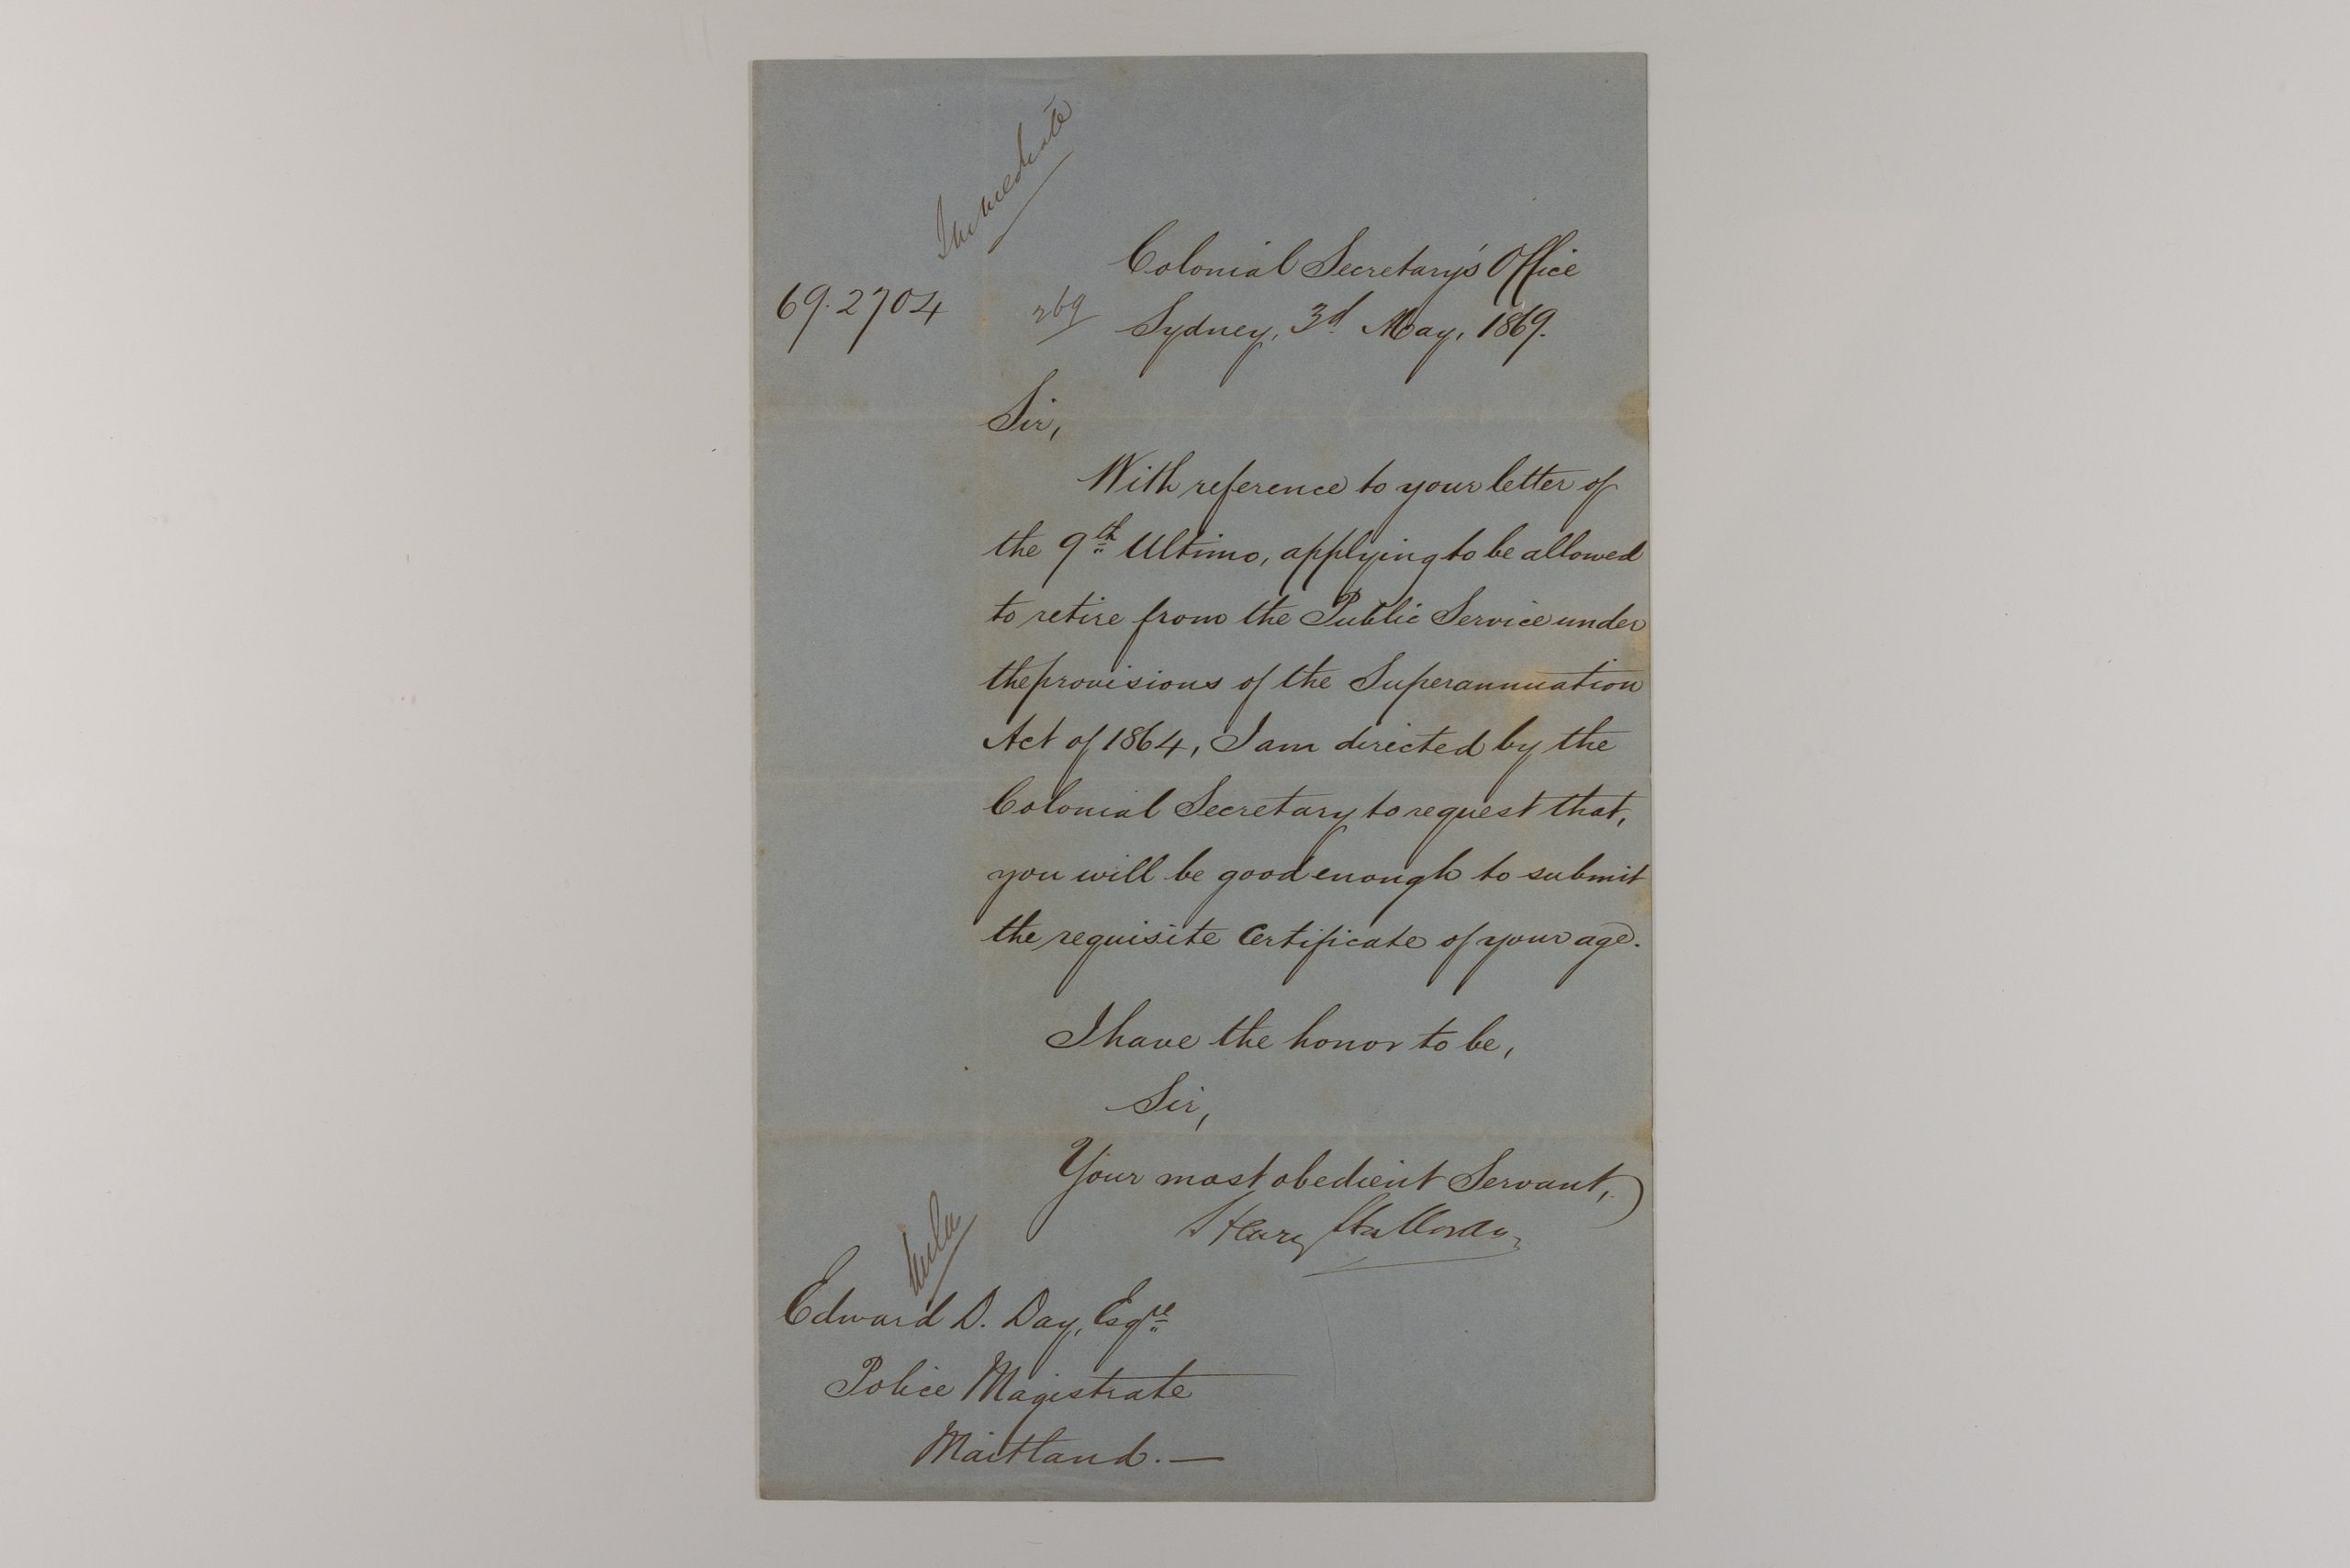 Immediate
Colonial Secretary's Office
69.2704
269
Sydney, 3d May, 1869.
Sir,
With reference to your letter of
the 9th Ultimo, applying to be allowed
to retire from the Public Service under
the provisions of the Superannuation
Act of 1864, I am directed by the
Colonial Secretary to request that,
you will be good enough to submit
the requisite Certificate of your age.
I have the honor to be,
Sir,
Your most obedient Servant,
Henry Halloran
Edward D. Day, Esqre
Police Magistrate
Maitland. —